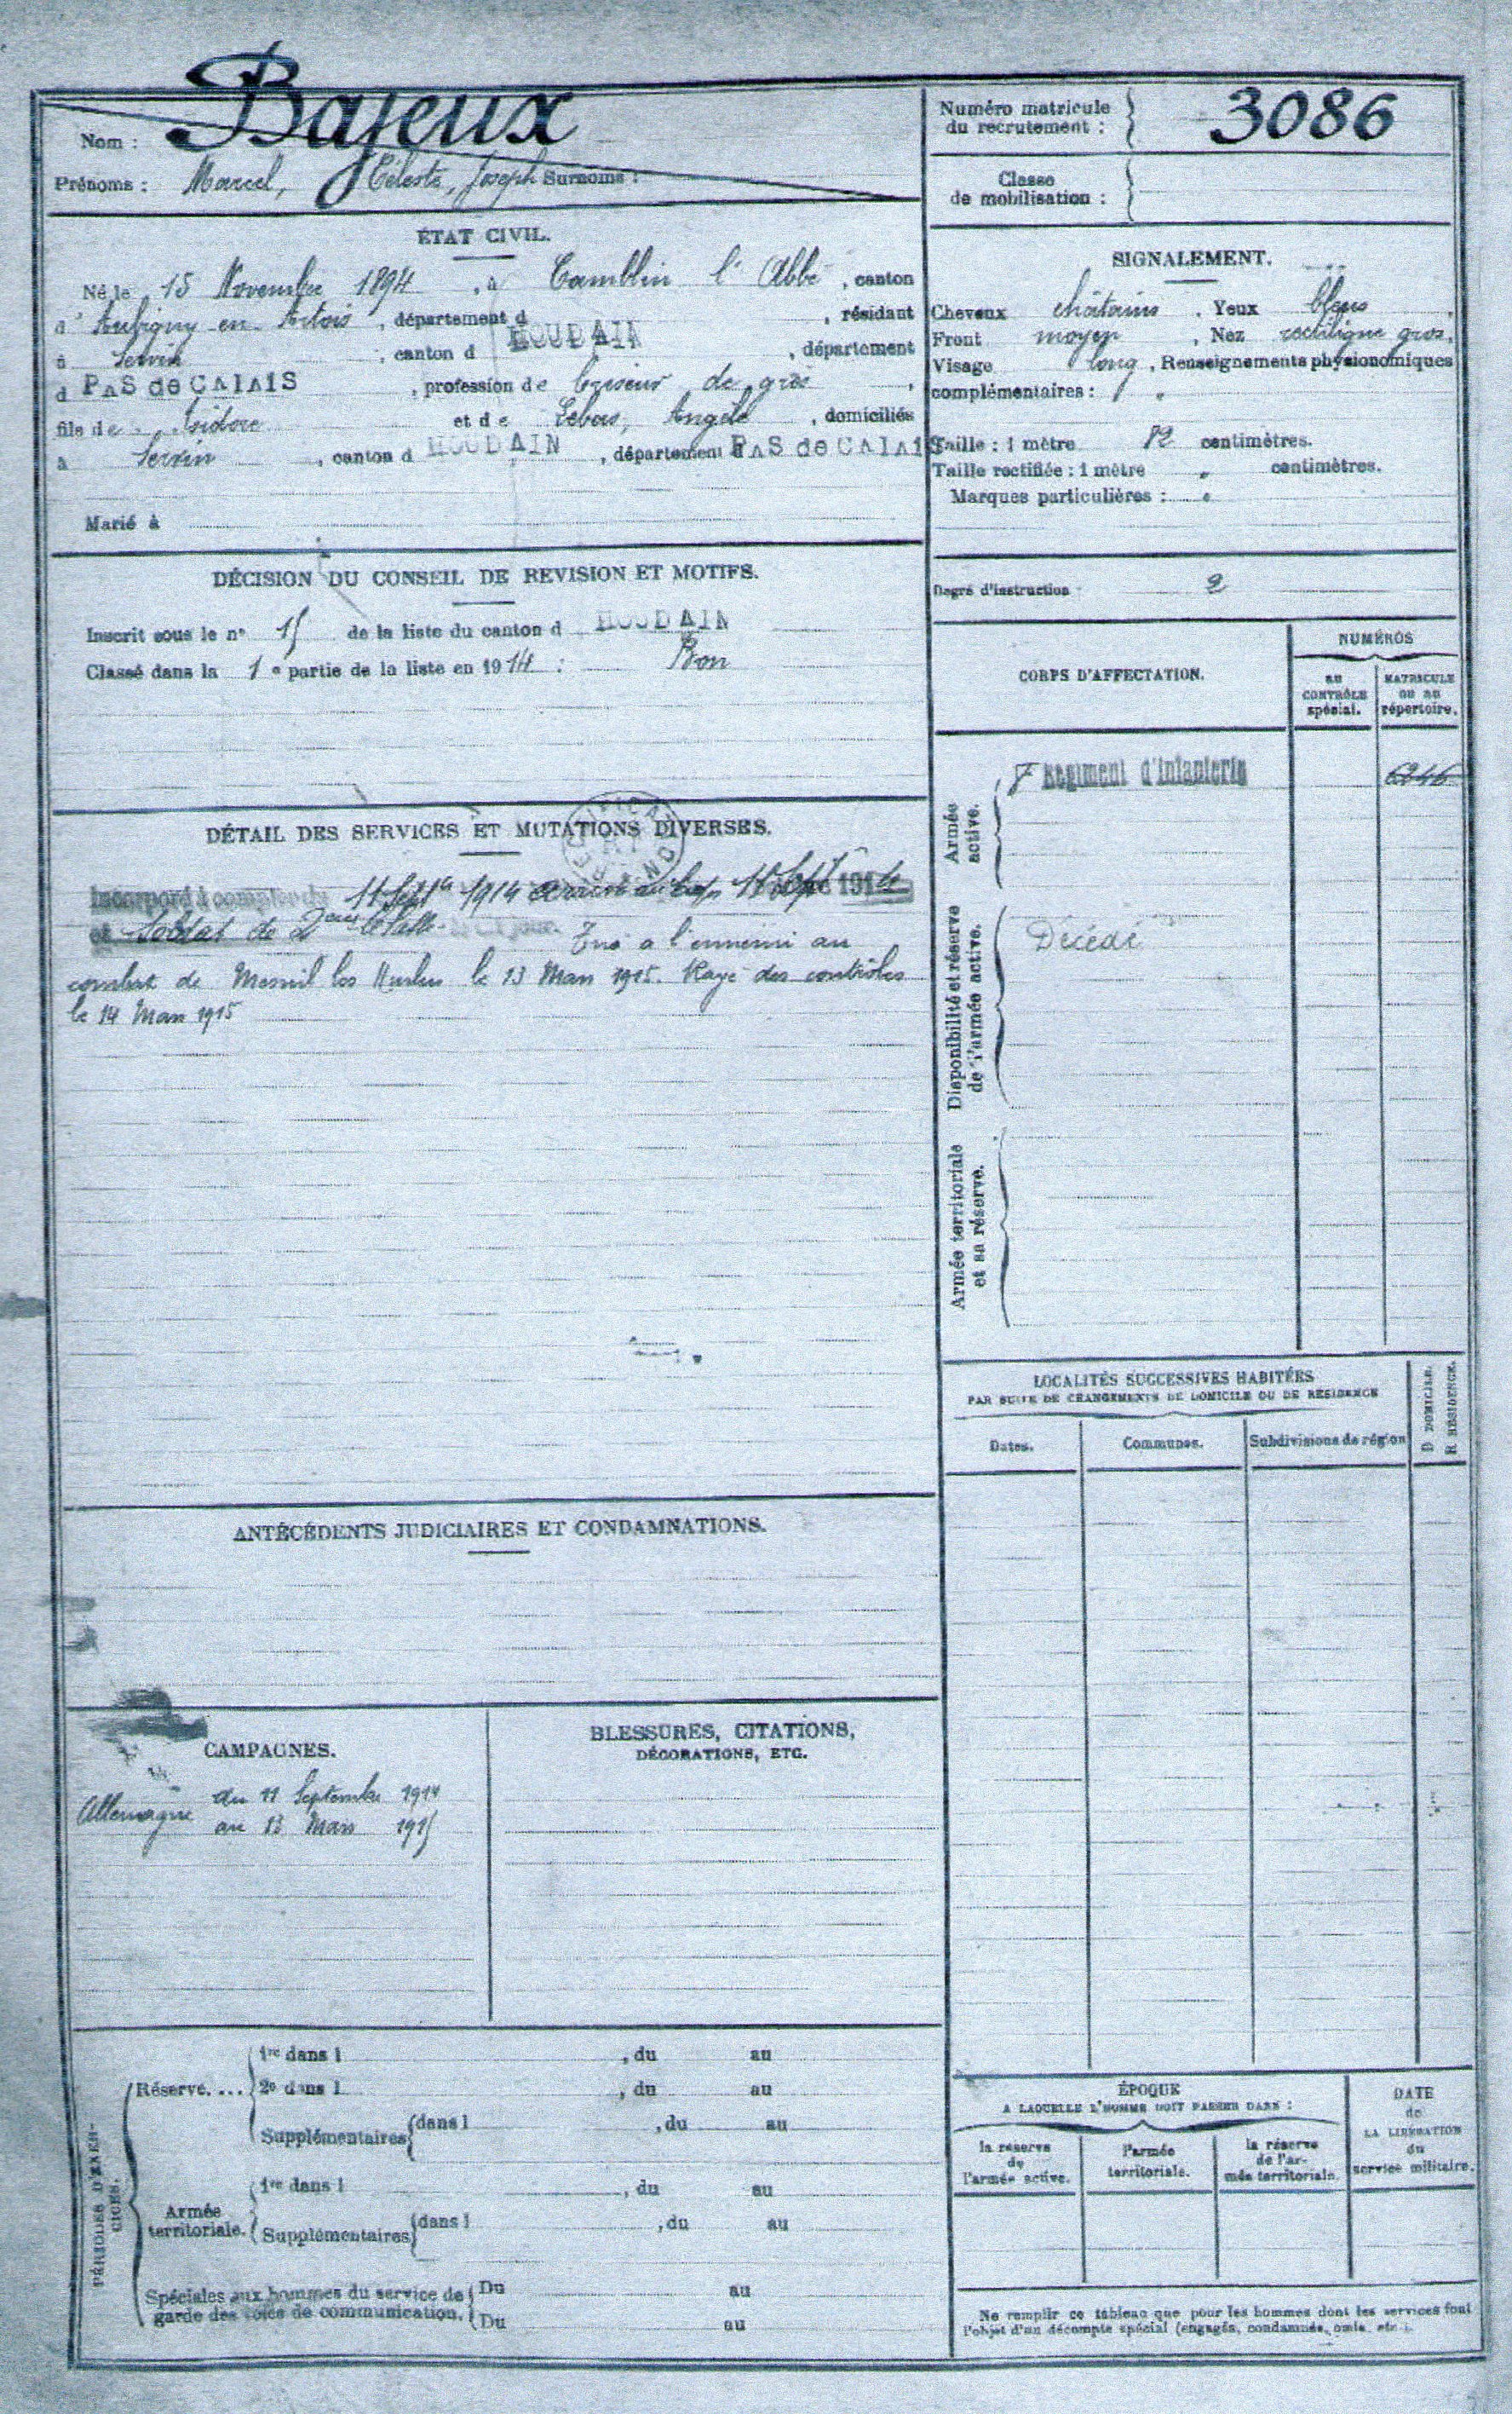 Nom : Bajeux
Prénoms : Marcel, Céleste, Joseph Surnoms :
Numéro matricule
du recrutement : 3086
Classe
de mobilisation :
ÉTAT CIVIL.
Né le 15 Novembre 1894, à Camblin l'Abbé, canton
d'Aubigny en Artois, département d , résidant
à Servin, canton d HOUDAIN, département
d PAS de CALAIS, profession de briseur de grès,
fils de Isidore et de Lebas, Angèle, domiciliés
à Servin, canton d HOUDAIN, département PAS de CALAIS
Marié à
SIGNALEMENT.
Cheveux châtains, Yeux bleus,
Front moyen, Nez rectiligne gros,
Visage long, Renseignements physionomiques
complémentaires : "
Taille : 1 mètre 72 centimètres.
Taille rectifiée : 1 mètre " centimètres.
Marques particulières : "
Degré d'instruction 2
DÉCISION DU CONSEIL DE REVISION ET MOTIFS.
Inscrit sous le n° 15 de la liste du canton d HOUDAIN
Classé dans la 1e partie de la liste en 1914 : Bon
CORPS D'AFFECTATION.
NUMÉROS
AU
CONTRÔLE
spécial.
MATRICULE
OU AU
répertoire.
Armée
active.
Régiment d'Infanterie 6246
Disponibilité et réserve
de l'armée active.
Décédé
Armée territoriale
et sa réserve.
DÉTAIL DES SERVICES ET MUTATIONS DIVERSES.
Incorporé à compter du 11 Septbre 1914 arrivé au Corps 11 Sept 1914
et Soldat de 2ème Classe Tué à l'ennemi au
combat de Mesnil les Hurlus le 13 Mars 1915. Rayé des contrôles
le 14 Mars 1915
LOCALITÉS SUCCESSIVES HABITÉES
PAR SUITE DE CHANGEMENTS DE DOMICILE OU DE RÉSIDENCE
Dates.
Communes.
Subdivisions de région
D DOMICILE.
R RÉSIDENCE.
ANTÉCÉDENTS JUDICIAIRES ET CONDAMNATIONS.
CAMPAGNES.
Allemagne du 11 Septembre 1914
au 13 Mars 1915
BLESSURES, CITATIONS,
DÉCORATIONS, ETC.
PÉRIODES D'EXER-
CICES.
Réserve....
1re dans l , du au
2e dans l , du au
Supplémentaires dans l , du au
Armée
territoriale.
1re dans l , du au
Supplémentaires dans l , du au
Spéciales aux hommes du service de
garde des voies de communication.
Du au
Du au
ÉPOQUE
A LAQUELLE L'HOMME DOIT PASSER DANS :
la réserve
de
l'armée active.
l'armée
territoriale.
la réserve
de l'ar-
mée territoriale.
DATE
de
LA LIBÉRATION
du
service militaire.
Ne remplir ce tableau que pour les hommes dont les services font
l'objet d'un décompte spécial (engagés, condamnés, omis, etc.).